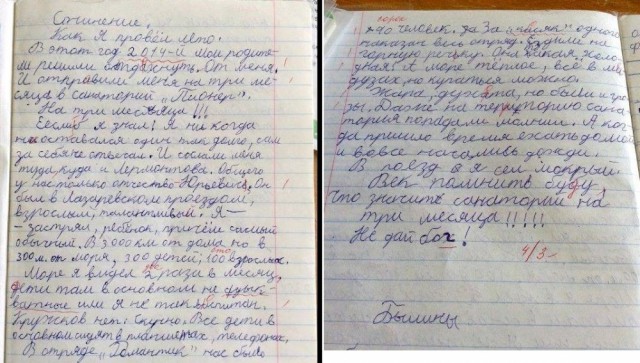 Сочинение.
Как я провёл лето.
В этот год 2014-й мои родите-
ли решили отдохнуть. От меня.
И отправили меня на три ме-
сяца в санаторий "Пионер".
На три месяца!!!
Если б я знал! Я ни когда
не оставался один так долго, сам
за себя не отвечал. И сослали меня
туда, куда и Лермонтова. Общего
у нас только отчество Юрьевич. Он
был в Лазаревском проездом,
взрослым, талантливый. Я—
— застрял, ребёнок, причём самый
обычный. В 3.000 км от дома, но в
300 м. от моря, 300 детей, сто 100 взрослых.
Море я видел два 2 раза в месяц,
дети там в основном не
или я не так воспитан.
Кружков нет. Скучно. Все дети в
основном сидят в планшетах, телефонах.
В отряде "Романтик" нас было
сорок
40 человек. За "косяк" одного
наказан весь отряд. Ездили на
горную речку. Она быстрая, холо-
дная! А море тёплое, всё в ме-
дузах, но купаться можно.
Жара, духота, но были и гро-
зы. Даже на территорию сана-
тория попадали молнии. А ког-
да пришло время ехать домой
и вовсе начались дожди.
В поезд я сел мокрый.
Век помнить буду,
что значит санаторий на
три месяца!!!!!
Не дай бог!
4/3-
Былины